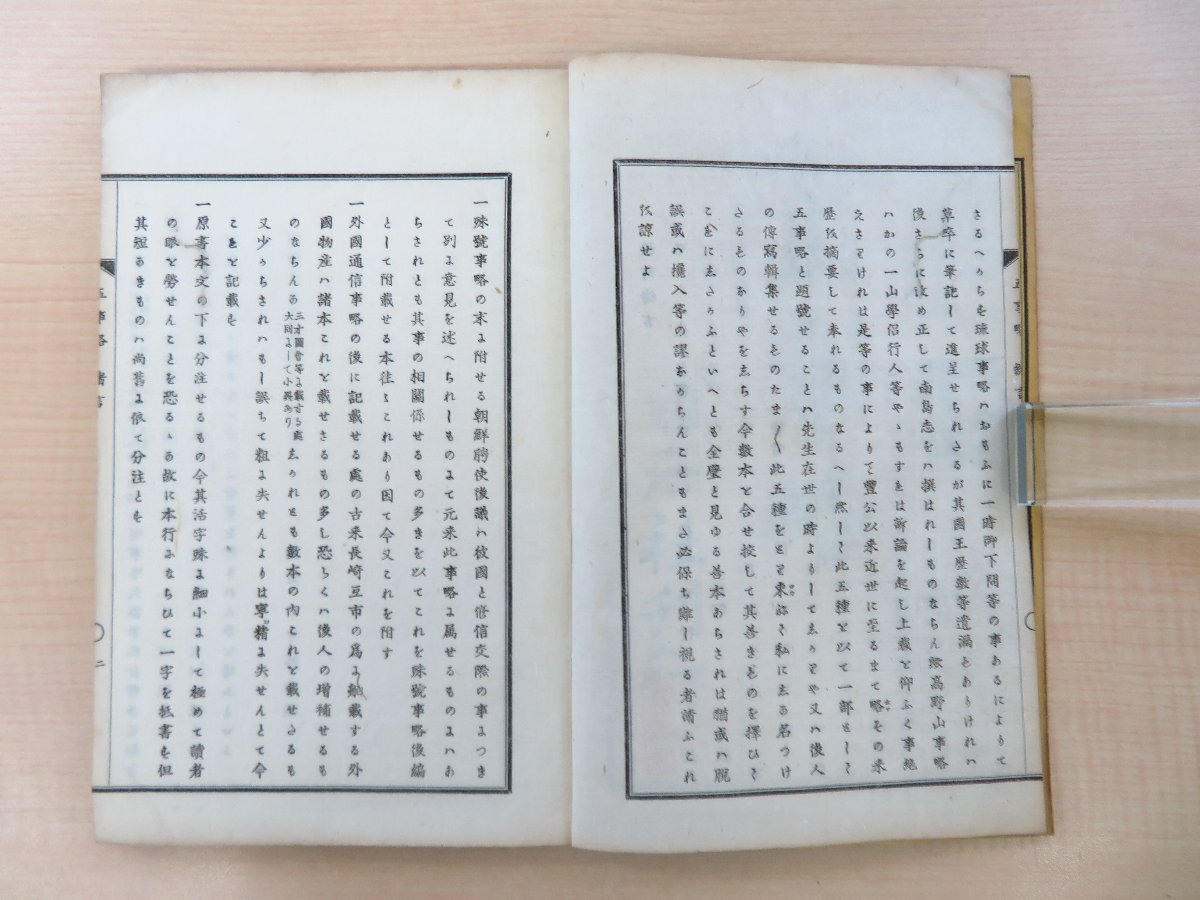 さるへからも琉球事略ハおもふに一時御下問等の事あるによりて
草卒に筆記して進呈せられたるが其國王歴數等遺漏もありけれハ
後さらに改め正して南島志をハ撰はれしものならん縱高野山事略
ハかの一山學侶行人等やゝもすれは訴論を起し上裁を仰ふく事絶
えさりけれは是等の事によりて豐公以来近世に至るまて略その来
歴を摘要して奉れるものなるへし然して此五種を以て一部として
五事略と題號せることハ先生在世の時よりしてしかりや又ハ後人
の傳寫輯集せるそのたまたま此五種をもと東ねて私にしる名つけ
さるものありやをしらす今數本を合せ挍して其善きものを擇ひて
こゝにしたかふといへとも全璧と見ゆる善本あらされは猶或ハ脱
誤或ハ攙入等の謬あらんこともまた必保ち難し視る者請ふこれ
を諒せよ
一殊號事略の末に附せる朝鮮聘使後議ハ彼國と修信交際の事につき
て別に意見を述へられしものにて元来此事略に属せるものにハあ
らされとも其事の相關係せるもの多きを以てこれを殊號事略後編
として附載せる本往々これあり因て今又これを附す
一外國通信事略の後に記載せる處の古来長崎互市の爲に舶載する外
國物産ハ諸本これを載せさるもの多し恐らくハ後人の増補せるも
のならんか三才圖會等に載する處大同にして小異ありしかれとも數本の内これを載せたるも
又少からされハもし誤ちて粗に失せんよりは寧精に失せんとて今
こゝに記載す
一原書本文の下に分注せるもの今其活字殊に細小にして極めて讀者
の眼を勞せんことを恐るゝか故に本行にならひて一字を低書す但
其短かきものハ尚舊に依て分注とす
五事略 緒言
二